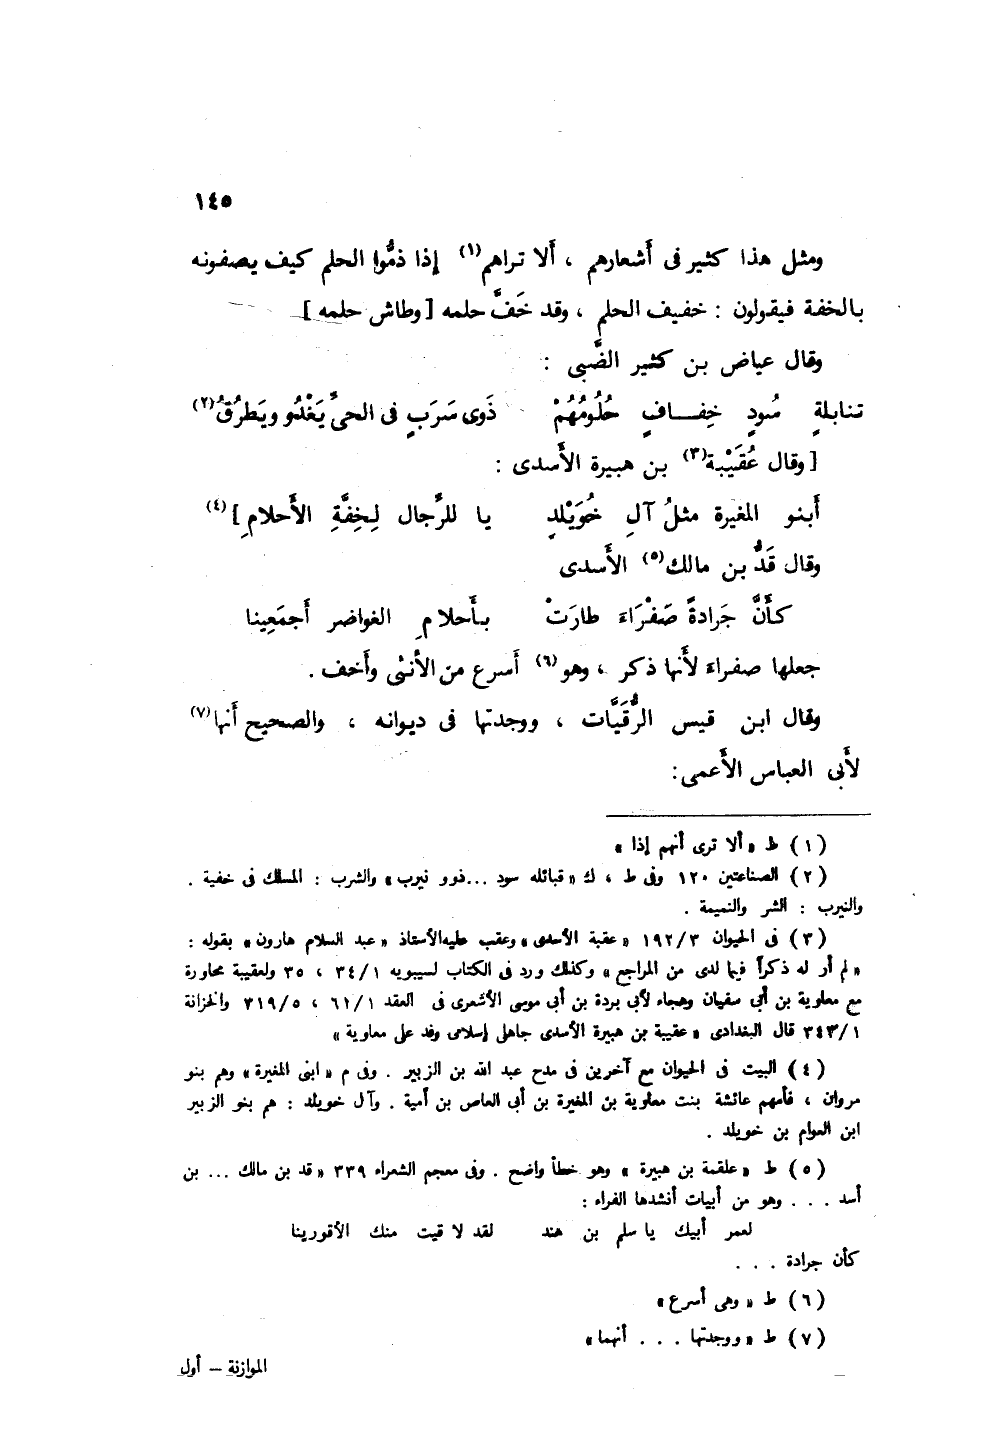 ١٤٥
ومثل هذا كثير فى أَشعارهم ، أَلا تراهم(١) إذا ذمُّوا الحلم كيف يصفونه
بالخفة فيقولون : خفيف الحلم ، وقد خَفَّ حلمه [ وطاش حلمه ]
وقال عياض بن كثير الضَّبى :
تنابلةٍ سُودٍ خِفـــافٍ حُلُومُهُمْ ذَوى سَرَبٍ فى الحىِّ يَغْدُو ويَطرُقُ(٢)
[ وقال عُقَيْبة(٣) بن هبيرة الأَسدى :
أَبنو المغيرة مثلُ آلِ خُوَيْلدٍ يا للرِّجال لِخِفَّةِ الأَحلامِ ](٤)
وقال قَدُّ بن مالك(٥) الأَسدى
كأَنَّ جَرادةً صَفْرَاءَ طارَتْ بأَحلامِ الغواضر أَجمَعِينا
جعلها صفراء لأَنها ذكر ، وهو(٦) أَسرع من الأُنثى وأَخف .
وقال ابن قيس الرُّقَيَّات ، ووجدتها فى ديوانه ، والصحيح أَنها(٧)
لأَبى العباس الأَعمى :
(١) ط « ألا ترى أنهم إذا »
(٢) الصناعتين ١٢٠ وفى ط ، ك « قبائله سود ... ذوو نيرب » والشرب : المسلك فى خفية .
والنيرب : الشر والنميمة .
(٣) فى الحيوان ١٩٢/٣ « عقبة الأسدى » وعقب عليه الأستاذ « عبد السلام هارون » بقوله :
« لم أر له ذكراً فيما لدى من المراجع » وكذلك ورد فى الكتاب لسيبويه ٣٤/١ ، ٣٥ ولعقيبة محاورة
مع معاوية بن أبى سفيان وهجاء لأبى بردة بن أبى موسى الأشعرى فى العقد ٦١/١ ، ٣١٩/٥ والخزانة
٣٤٣/١ قال البغدادى « عقيبة بن هبيرة الأسدى جاهلى إسلامى وفد على معاوية »
(٤) البيت فى الحيوان مع آخرين فى مدح عبد الله بن الزبير . وفى م « ابنى المغيرة » وهم بنو
مروان ، فأمهم عائشة بنت معاوية بن المغيرة بن أبى العاص بن أمية . وآل خويلد : هم بنو الزبير
ابن العوام بن خويلد .
(٥) ط « علقمة بن هبيرة » وهو خطأ واضح . وفى معجم الشعراء ٣٣٩ « قد بن مالك ... بن
أسد . . . وهو من أبيات أنشدها الفراء :
لعمر أبيك يا سلم بن هند لقد لاقيت منك الأقورينا
كأن جرادة . . .
(٦) ط « وهى أسرع »
(٧) ط « ووجدتها . . . أنهما »
الموازنة – أول